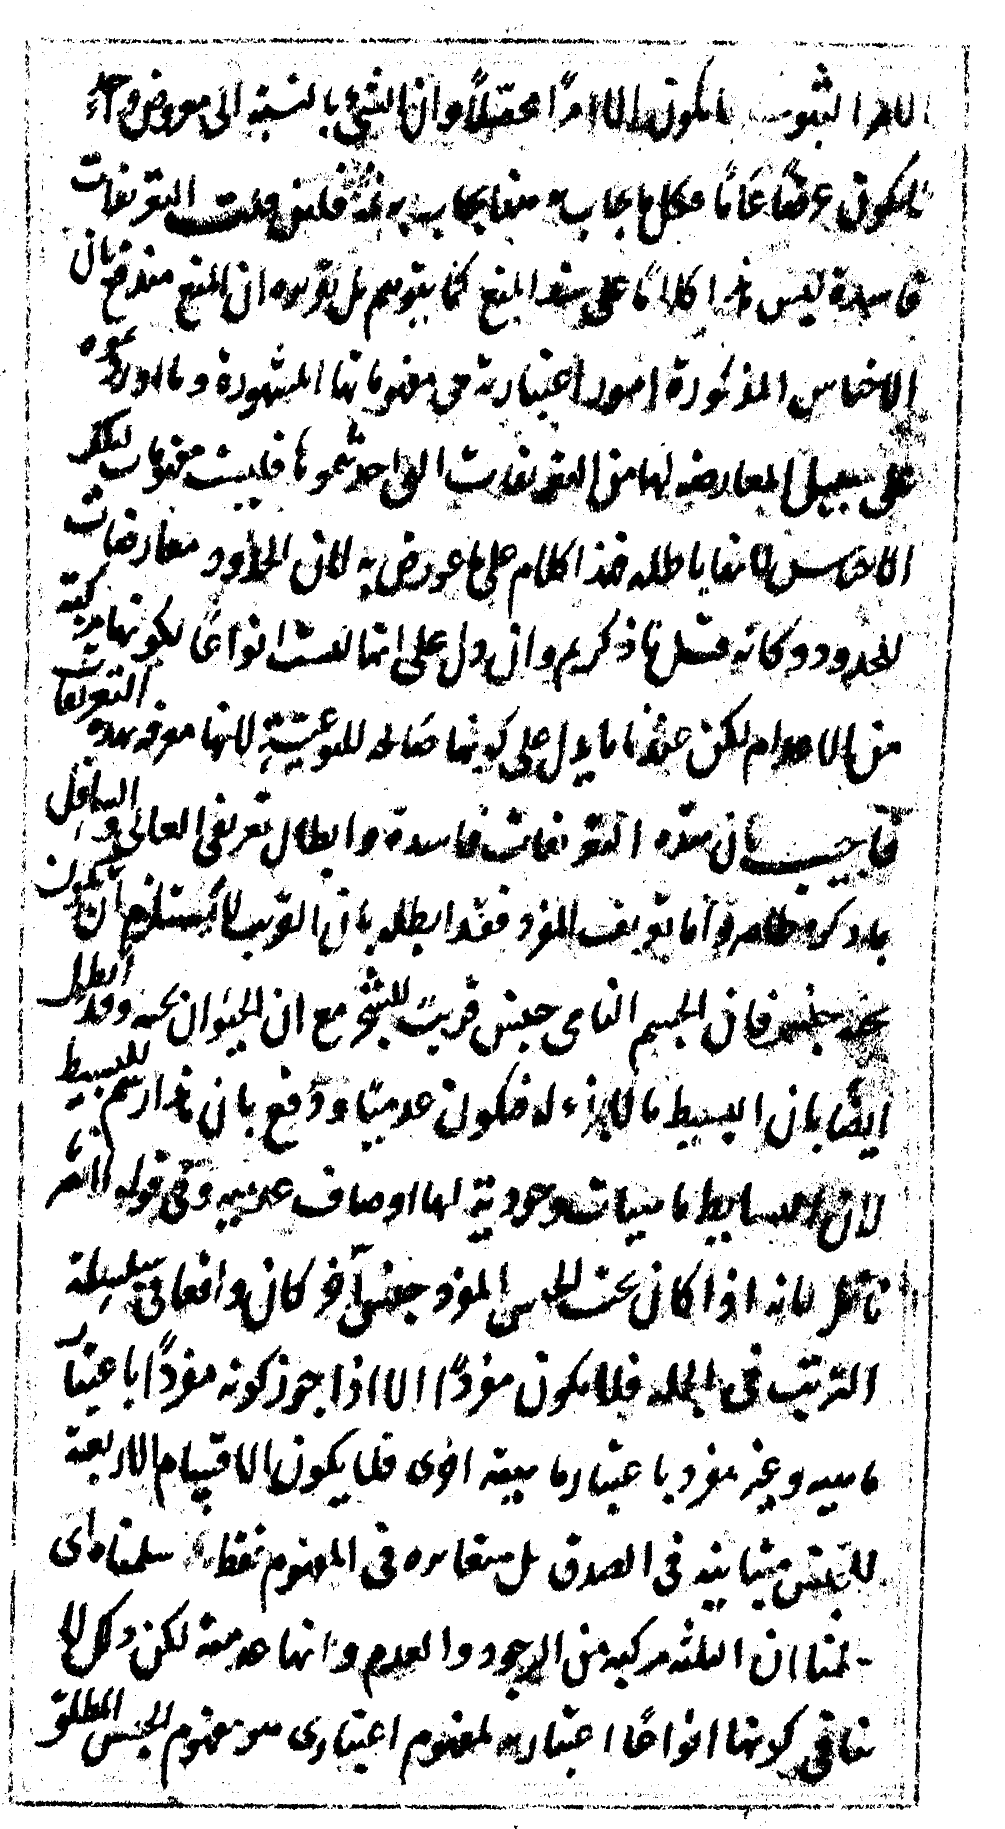 الامر الثبوت ما يكون الا امرا محققا وان الشيء بالنسبة الى معروض واحد
لا يكون عرضا عاما فكل ما يجاب به منها يجاب به ثمة فلئن قلت التعريفات
فاسدة ليس هذا كلاما على سند المنع كما يتوهم بل تقريره ان المنع مندفع بان
الاجناس المذكورة امور اعتبارية هي مفهوماتها المشهورة وما اوردتموه
على سبيل المعارضة لها من التعريفات التي احدثتموها فليست مفهومات لتلك
الاجناس لانها باطلة فهذا كلام على ما عورض به لان الحدود معارضات
للحدود وكانه قيل ما ذكرتم وان دل على انها ليست انواعا لكونها مركبة
من الاعدام لكن عندنا ما يدل على كونها صالحة للنوعية لانها معرفة بهذه التعريفات
فاجيب بان هذه التعريفات فاسدة وابطال تعريفي العالي والسافل
بما ذكره ظاهر واما تعريف المفرد فقد ابطله بان القريب لا يستلزم ان يكون
تحته جنس فان الجسم النامي جنس قريب للشجر مع ان الحيوان تحته وقد ابطل
ايضا بان البسيط ما لا جزء له فيكون عدميا ودفع بان هذا رسم للبسيط
لان البسايط ماهيات وجودية لها اوصاف عدمية وفي قوله لا اثر
تأمل لانه اذا كان تحت الجنس المفرد جنس آخر كان واقعا في سلسلة
الترتيب في الجملة فلا يكون مفردا الا اذا جوز كونه مفردا باعتبار
ماهية وغير مفرد باعتبار ماهية اخرى فلا يكون الاقسام الاربعة
للجنس متباينة في الصدق بل متغايرة في المفهوم فقط سلمناه اي
سلمنا ان الثلثة مركبة من الوجود والعدم وانها عدمية لكن ذلك لا
ينافي كونها انواعا اعتبارية لمفهوم اعتباري هو مفهوم الجنس المطلق